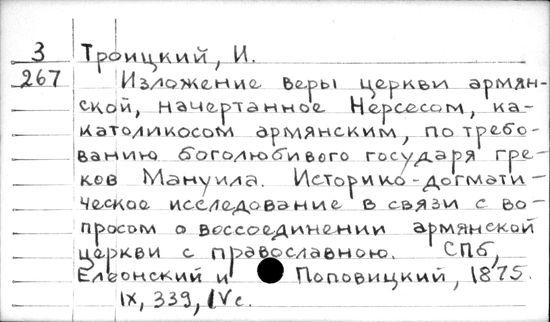 3 Троицкий, И.
267 Изложение веры церкви армян-
ской, начертанное Нерсесом, ка-
католикосом армянским, по требо-
ванию боголюбивого государя гре-
ков Мануила. Историко-догмати-
ческое исследование в связи с во-
просом о воссоединении армянской
церкви с православною. СПб,
Елеонский и Поповицкий, 1875.
IX, 339, IVс.